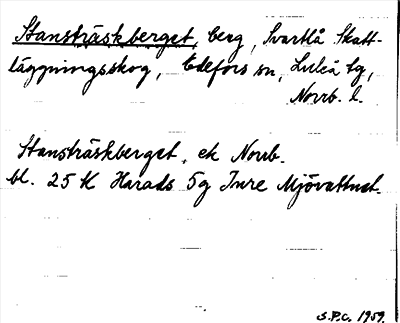 Stansträskberget, berg, Svartlå Skatt-
läggningsskog, Edefors sn, Luleå tg,
Norrb. l.
Stansträskberget, ek Norrb.
bl. 25 K Harads 5g Inre Mjövattnet.
S.P.C. 1959.